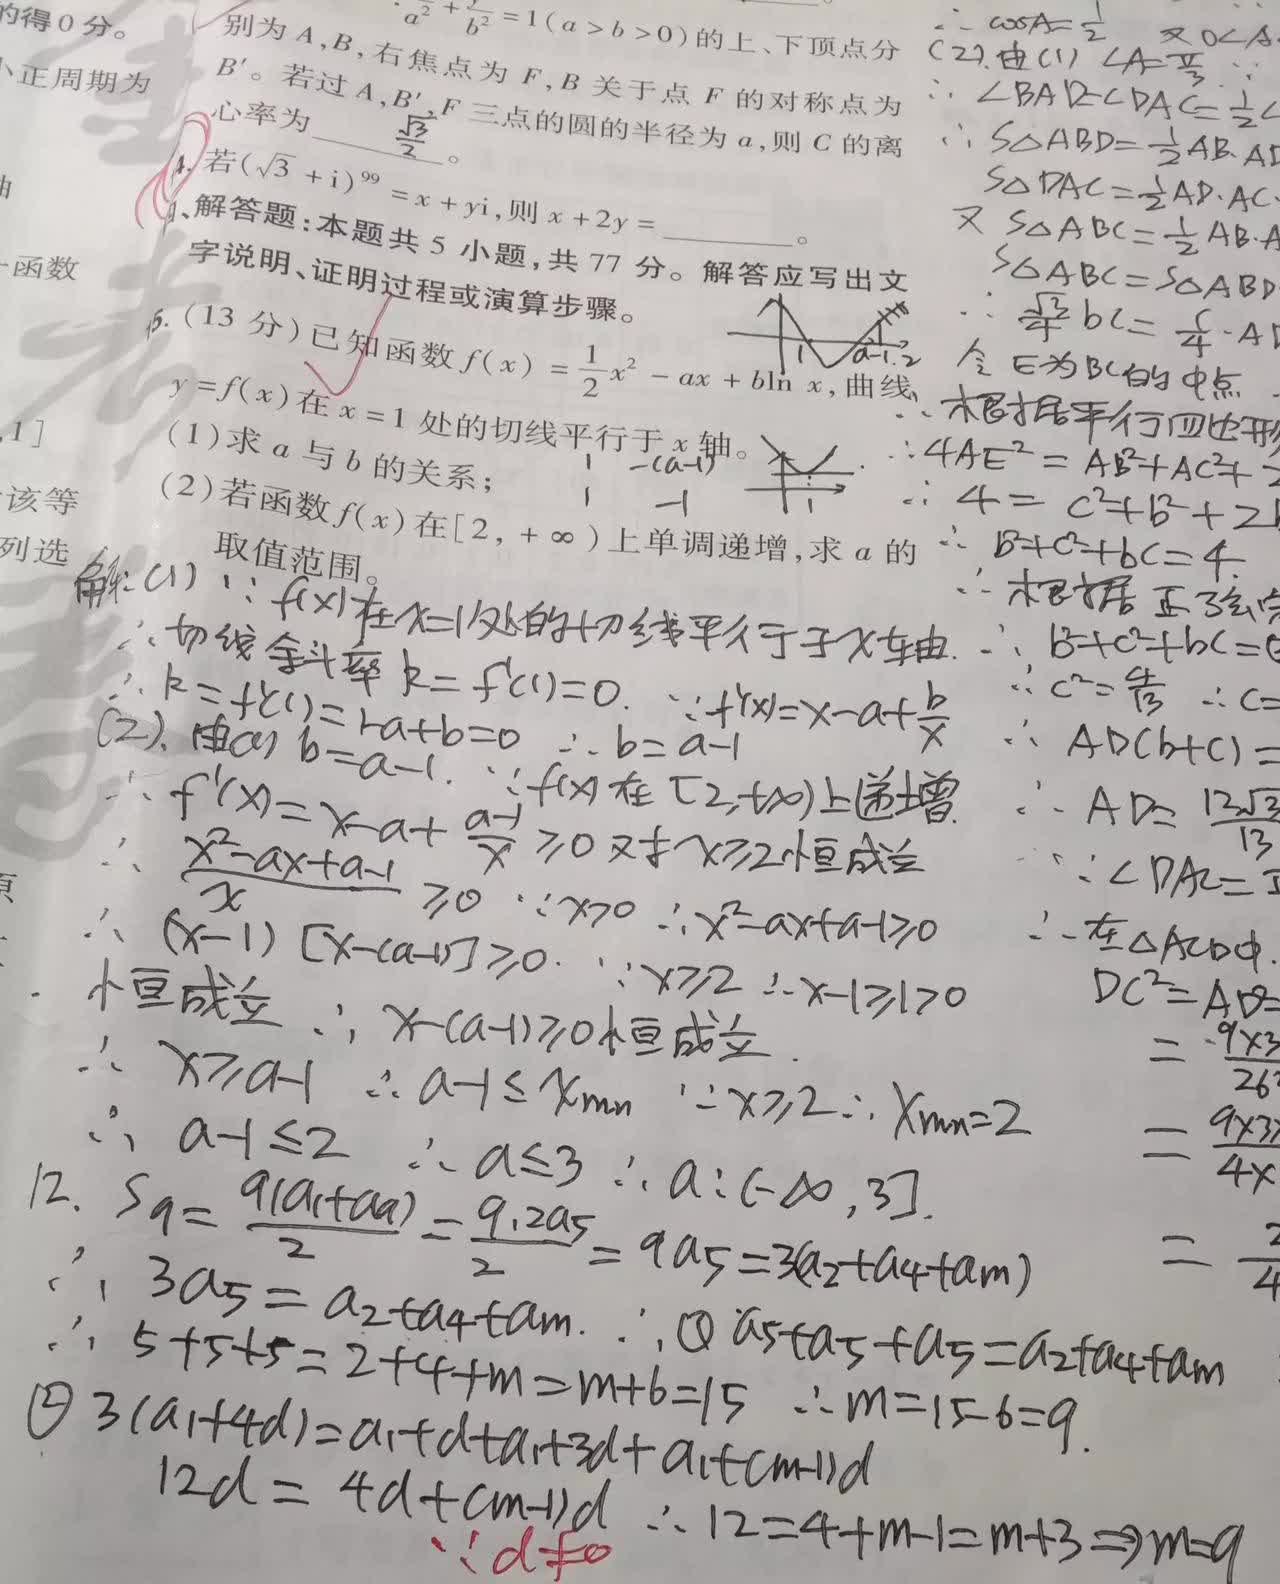 的得0分。
小正周期为
一函数
,1]
该等
列选
a² + b² = 1(a>b>0)的上、下顶点分
别为A,B,右焦点为F,B关于点F的对称点为
B'。若过A,B',F三点的圆的半径为a,则C的离
心率为 √3/2 。
4. 若(√3+i)⁹⁹=x+yi,则x+2y=______。
、解答题:本题共5小题,共77分。解答应写出文
字说明、证明过程或演算步骤。
5. (13分)已知函数f(x)=1/2x²-ax+bln x,曲线
y=f(x)在x=1处的切线平行于x轴。
(1)求a与b的关系;
(2)若函数f(x)在[2,+∞)上单调递增,求a的
取值范围。
1 a-1 2
1 -(a-1)
1 -1
1
解:(1) ∵f(x)在x=1处的切线平行于x轴.
∴切线斜率k=f'(1)=0. ∵f'(x)=x-a+b/x
∴k=f'(1)=1-a+b=0 ∴b=a-1
(2). 由(1) b=a-1. ∵f(x)在[2,+∞)上递增.
∴f'(x)=x-a+(a-1)/x≥0对于x≥2恒成立
∴(x²-ax+a-1)/x≥0 ∵x>0 ∴x²-ax+a-1≥0
∴(x-1)[x-(a-1)]≥0. ∵x≥2 ∴x-1≥1>0
恒成立 ∴x-(a-1)≥0恒成立.
∴x≥a-1 ∴a-1≤xmin ∵x≥2∴xmin=2
∴a-1≤2 ∴a≤3 ∴a:(-∞,3].
12. S9=9(a1+a9)/2=9·2a5/2=9a5=3(a2+a4+am)
∴3a5=a2+a4+am. ∴①a5+a5+a5=a2+a4+am
∴5+5+5=2+4+m=m+6=15 ∴m=15-6=9.
②3(a1+4d)=a1+d+a1+3d+a1+(m-1)d
12d=4d+(m-1)d ∴12=4+m-1=m+3⇒m=9
∵d≠0
∴cosA=1/2 又0<A
(2).由(1) ∠A=π/3 ∵
∴∠BAD=∠DAC=1/2∠
∴S△ABD=1/2AB·AD
S△DAC=1/2AD·AC·
又S△ABC=1/2AB·A
S△ABC=S△ABD
∴√3/4bc=c/4·AD
令E为BC的中点
∴根据平行四边形
∴4AE²=AB²+AC²+2
∴4=c²+b²+2b
∴b²+c²+bc=4.
∴根据正弦
∴b²+c²+bc=
∴c²=4/13 ∴c=
∴AD(b+c)=
∴AD=12√3/13
∵∠DAC=
∴在△ACD中.
DC²=AD²
=9×3/26²
=9×3×/4×
=